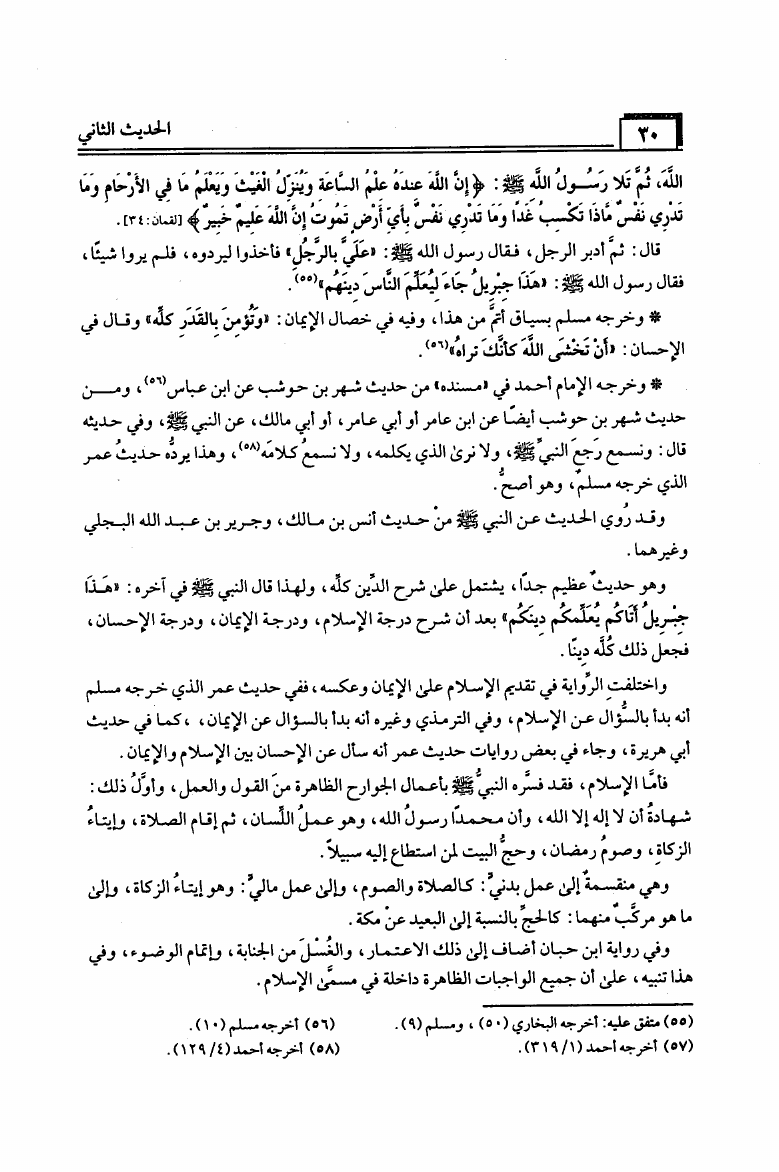 ٣٠
الحديث الثاني
اللَّهَ، ثُمَّ تَلا رَسُولُ اللَّه ﷺ: ﴿إِنَّ اللَّهَ عِندَهُ عِلْمُ السَّاعَةِ وَيُنَزِّلُ الْغَيْثَ وَيَعْلَمُ مَا فِي الأَرْحَامِ وَمَا
تَدْرِي نَفْسٌ مَّاذَا تَكْسِبُ غَدًا وَمَا تَدْرِي نَفْسٌ بِأَيِّ أَرْضٍ تَمُوتُ إِنَّ اللَّهَ عَلِيمٌ خَبِيرٌ﴾ [لقمان: ٣٤].
قال: ثمَّ أدبر الرجل، فقال رسول الله ﷺ: «عَلَيَّ بالرَّجُلِ» فأخذوا ليردوه، فلم يروا شيئًا،
فقال رسول الله ﷺ: «هَذَا جِبْرِيلُ جَاءَ لِيُعَلِّمَ النَّاسَ دِينَهُم»(٥٥).
* وخرجه مسلم بسياق أتمَّ من هذا، وفيه في خصال الإيمان: «وَتُؤْمِنَ بِالقَدَرِ كلِّه» وقال في
الإحسان: «أَنْ تَخْشَى اللَّهَ كَأَنَّكَ تراهُ»(٥٦).
* وخرجه الإمام أحمد في «مسنده» من حديث شهر بن حوشب عن ابن عباس(٥٦)، ومن
حديث شهر بن حوشب أيضًا عن ابن عامر أو أبي عامر، أو أبي مالك، عن النبي ﷺ، وفي حديثه
قال: ونسمع رَجعَ النبيِّ ﷺ، ولا نرىٰ الذي يكلمه، ولا نسمعُ كلامَه(٥٨)، وهذا يردُّه حديثُ عمر
الذي خرجه مسلمٌ، وهو أصحُّ.
وقد رُوي الحديث عن النبي ﷺ منْ حديث أنس بن مالك، وجرير بن عبد الله البجلي
وغيرهما.
وهو حديثٌ عظيم جدًا، يشتمل علىٰ شرح الدِّين كلِّه، ولهذا قال النبي ﷺ في آخره: «هَذَا
جِبْرِيلُ أَتَاكُم يُعَلِّمكُم دِينَكُم» بعد أن شرح درجة الإسلام، ودرجة الإيمان، ودرجة الإحسان،
فجعل ذلك كُلَّه دِينًا.
واختلفتِ الرِّواية في تقديم الإسلام علىٰ الإيمان وعكسه، ففي حديث عمر الذي خرجه مسلم
أنه بدأ بالسُّؤال عن الإسلام، وفي الترمذي وغيره أنه بدأ بالسؤال عن الإيمان، ،كما في حديث
أبي هريرة، وجاء في بعض روايات حديث عمر أنه سأل عن الإحسان بين الإسلام والإيمان.
فأمَّا الإسلام، فقد فسَّره النبيُّ ﷺ بأعمال الجوارح الظاهرة منَ القول والعمل، وأوَّلُ ذلك:
شهادةُ أن لا إله إلا الله، وأن محمدًا رسولُ الله، وهو عملُ اللِّسان، ثم إقام الصلاة، وإيتاءُ
الزكاةِ، وصومُ رمضان، وحجُّ البيت لمن استطاع إليه سبيلاً.
وهي منقسمةٌ إلىٰ عمل بدنيٍّ: كالصلاة والصوم، وإلىٰ عمل ماليٍّ: وهو إيتاءُ الزكاة، وإلىٰ
ما هو مركَّبٌ منهما: كالحجِّ بالنسبة إلىٰ البعيد عنْ مكة.
وفي رواية ابن حبان أضاف إلىٰ ذلك الاعتمار، والغُسْلَ من الجنابة، وإتمام الوضوء، وفي
هذا تنبيه، علىٰ أن جميع الواجبات الظاهرة داخلة في مسمَّىٰ الإسلام.
(٥٥) متفق عليه: أخرجه البخاري (٥٠)، ومسلم (٩).
(٥٦) أخرجه مسلم (١٠).
(٥٧) أخرجه أحمد (١/ ٣١٩).
(٥٨) أخرجه أحمد (٤/ ١٢٩).